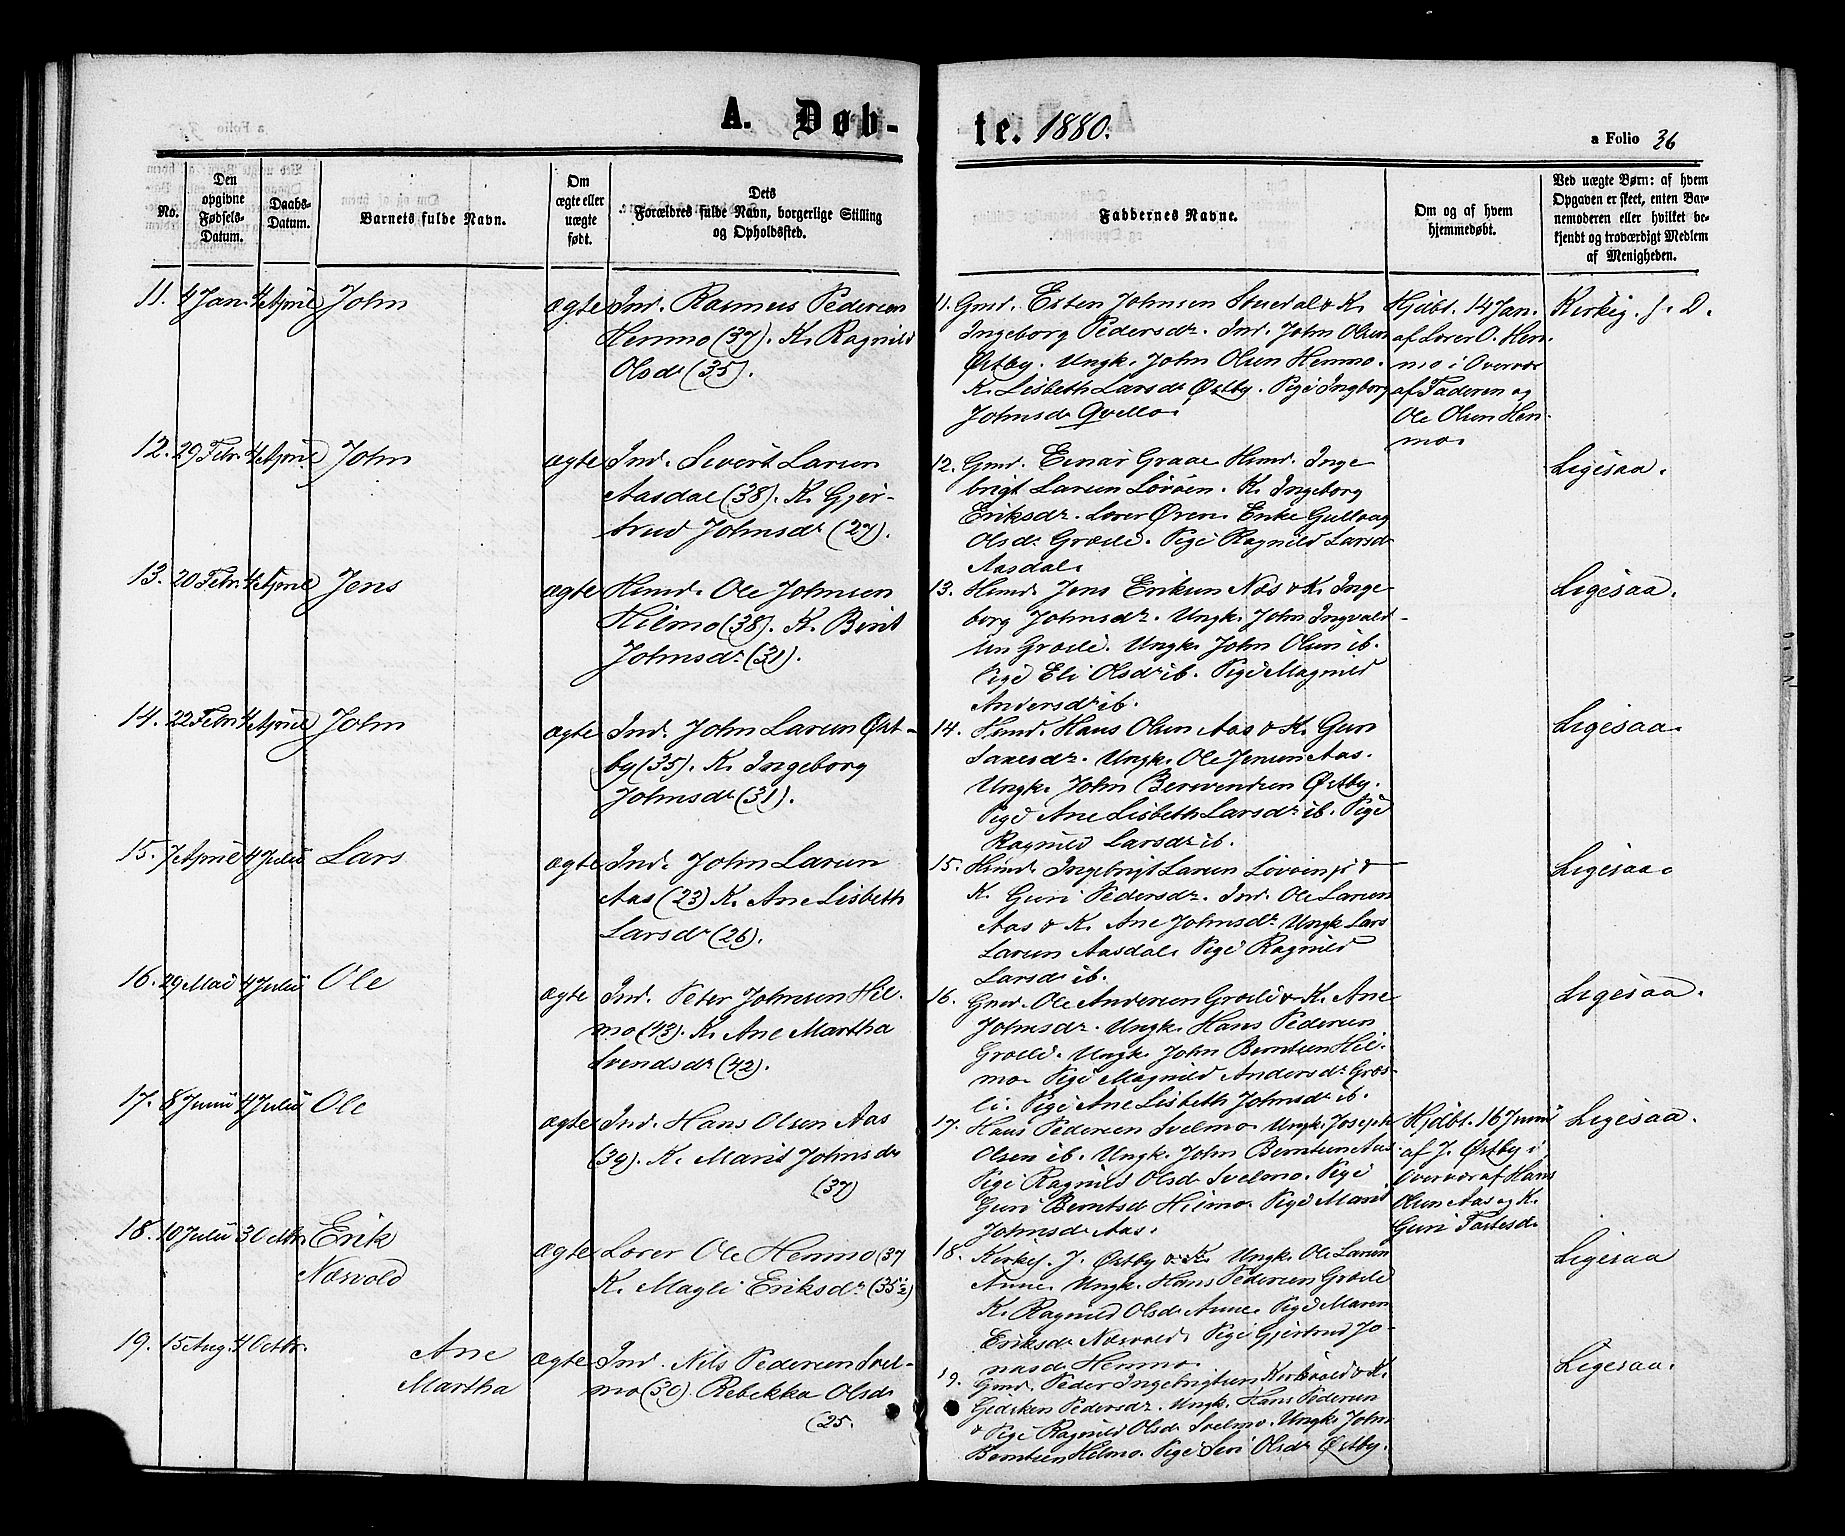 A. Døb-
te. 1880.
a Folio 36
No.
Den
opgivne
Fødsels-
Datum.
Daabs-
Datum.
Barnets fulde Navn.
Om
ægte eller
uægte
født.
Dets
Forældres fulde Navn, borgerlige Stilling
og Opholdssted.
Faddernes Navne.
Om og af hvem
hjemmedøbt.
Ved uægte Børn: af hvem
Opgaven er skeet, enten Bar-
nemoderen eller hvilket be-
kjendt og troværdigt Medlem
af Menigheden.
11. 4 Jan. 4 April John
ægte Ind. Rasmus Pedersen
Hemmo (37). K. Ragnild
Olsdr (35).
11. Gmd. Esten Johnsen Stuedal & K.
Ingeborg Pedersdr. Ind. John Olsen
Østby. Ungk. John Olsen Hemmo.
K. Lisbeth Larsdr Østby. Pige Ingborg
Johnsdr Qvello.
Hjdbt. 14 Jan.
af Lærer O. Hem-
mo i Overvær
af Faderen og
Ole Olsen Hem-
mo.
Kirkig. f. D.
12. 29 Febr. 4 April John
ægte Ind. Sivert Larsen
Aasdal (38). K. Gjer-
trud Johnsdr (27).
12. Gmd. Einar Graae Hmd. Inge
brigt Larsen Løvøen. K. Ingeborg
Eriksdr. Lærer Øren. Enke Gullaug
Olsdr Græsli. Pige Ragnild Larsdr
Aasdal.
Ligesaa.
13. 20 Febr. 4 April Jens
ægte Hmd. Ole Johnsen
Hilmo (38). K. Berit
Johnsdr. (31).
13. Hmd. Jens Eriksen Næs & K. Inge-
borg Johnsdr. Ungk. John Ingvald-
sen Græsli. Ungk. John Olsen ib.
Pige Eli Olsdr ib. Pige Magnild
Andersdr ib.
Ligesaa.
14. 22 Febr. 4 April John
ægte Ind. John Larsen Øst-
by (35). K. Ingeborg
Johnsdr (31).
14. Hmd. Hans Olsen Aas & K. Guri
Larsesdr. Ungk. Ole Jensen Aas.
Ungk. John Bersvendsen Østby.
Pige Ane Lisbeth Larsdr ib. Pige
Ragnild Larsdr ib.
Ligesaa.
15. 7 April 4 Julii Lars
ægte Ind. John Larsen
Aas (23) K. Ane Lisbeth
Larsdr (26).
15. Hmd. Ingebrigt Larsen Løvøingi &
K. Guri Pedersdr. Ind. Ole Larsen
Aas & K. Ane Johnsdr. Ungk Lars
Larsen Aasdal. Pige Ragnild
Larsdr ib.
Ligesaa.
16. 29 Mai 4 Julii Ole
ægte Ind. Peter Johnsen Hil-
mo (43). K. Ane Martha
Svendsdr (42).
16. Gmd. Ole Andersen Græsli & K. Ane
Johnsdr. Ungk. Hans Pedersen
Græsli. Ungk. John Berntsen Hil-
mo. Pige Magnild Andersdr Græs-
li. Pige Ane Lisbeth Johnsdr ib.
Ligesaa.
17. 8 Junii 4 Julii Ole
ægte Ind. Hans Olsen Aas
(39). K. Marit Johnsdr
(37)
17. Hans Pedersen Svelmo. Ungk. Joseph
Olsen ib. Ungk. John Berntsen Aas
Pige Ragnild Olsdr Svelmo. Pige
Guri Berntsdr Hilmo. Pige Marit
Johnsdr Aas.
Hjdbt. 16 Junii
af J. Østby i
Overvær af Hans
Olsen Aas og K.
Guri Tostesdr.
Ligesaa.
18. 10 Julii 3 Octbr. Erik
Næsvold
ægte Lærer Ole Hemmo (37
K. Magli Eriksdr. (35½)
18. Kirkes. J. Østby & K. Ungk. Ole Larsen
Anne. Ungk. Hans Pedersen Græsli
K. Ragnild Olsdr Anne. Pige Maren
Eriksdr Næsvold. Pige Gjertrud Jo-
nasdr Hemmo.
Ligesaa
19. 15 Aug. 4 Octbr. Ane
Martha
ægte Ind. Nils Pedersen Svel-
mo (30). Rebekka Olsdr
(25.
19. Gmd. Peder Ingebrigtsen Kirkvold & K.
Gidsken Pedersdr. Ungk. Hans Pedersen
& Pige Ragnild Olsdr Svelmo. Ungk. John
Berntsen Hilmo. Pige Siri Olsdr Østby.
Ligesaa.